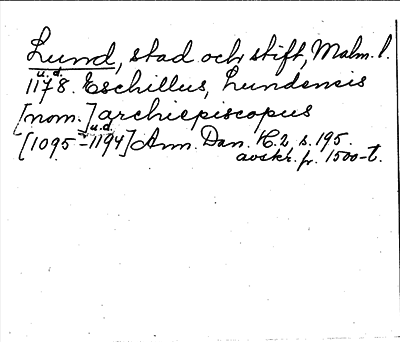 Lund, stad och stift, Malm. l.
u.d.
1178. Eschillus, Lundensis
[nom.] archiepiscopus
u.d.
[1095-1194] Ann. Dan. H. 2, s. 195.
avskr. fr. 1500-t.